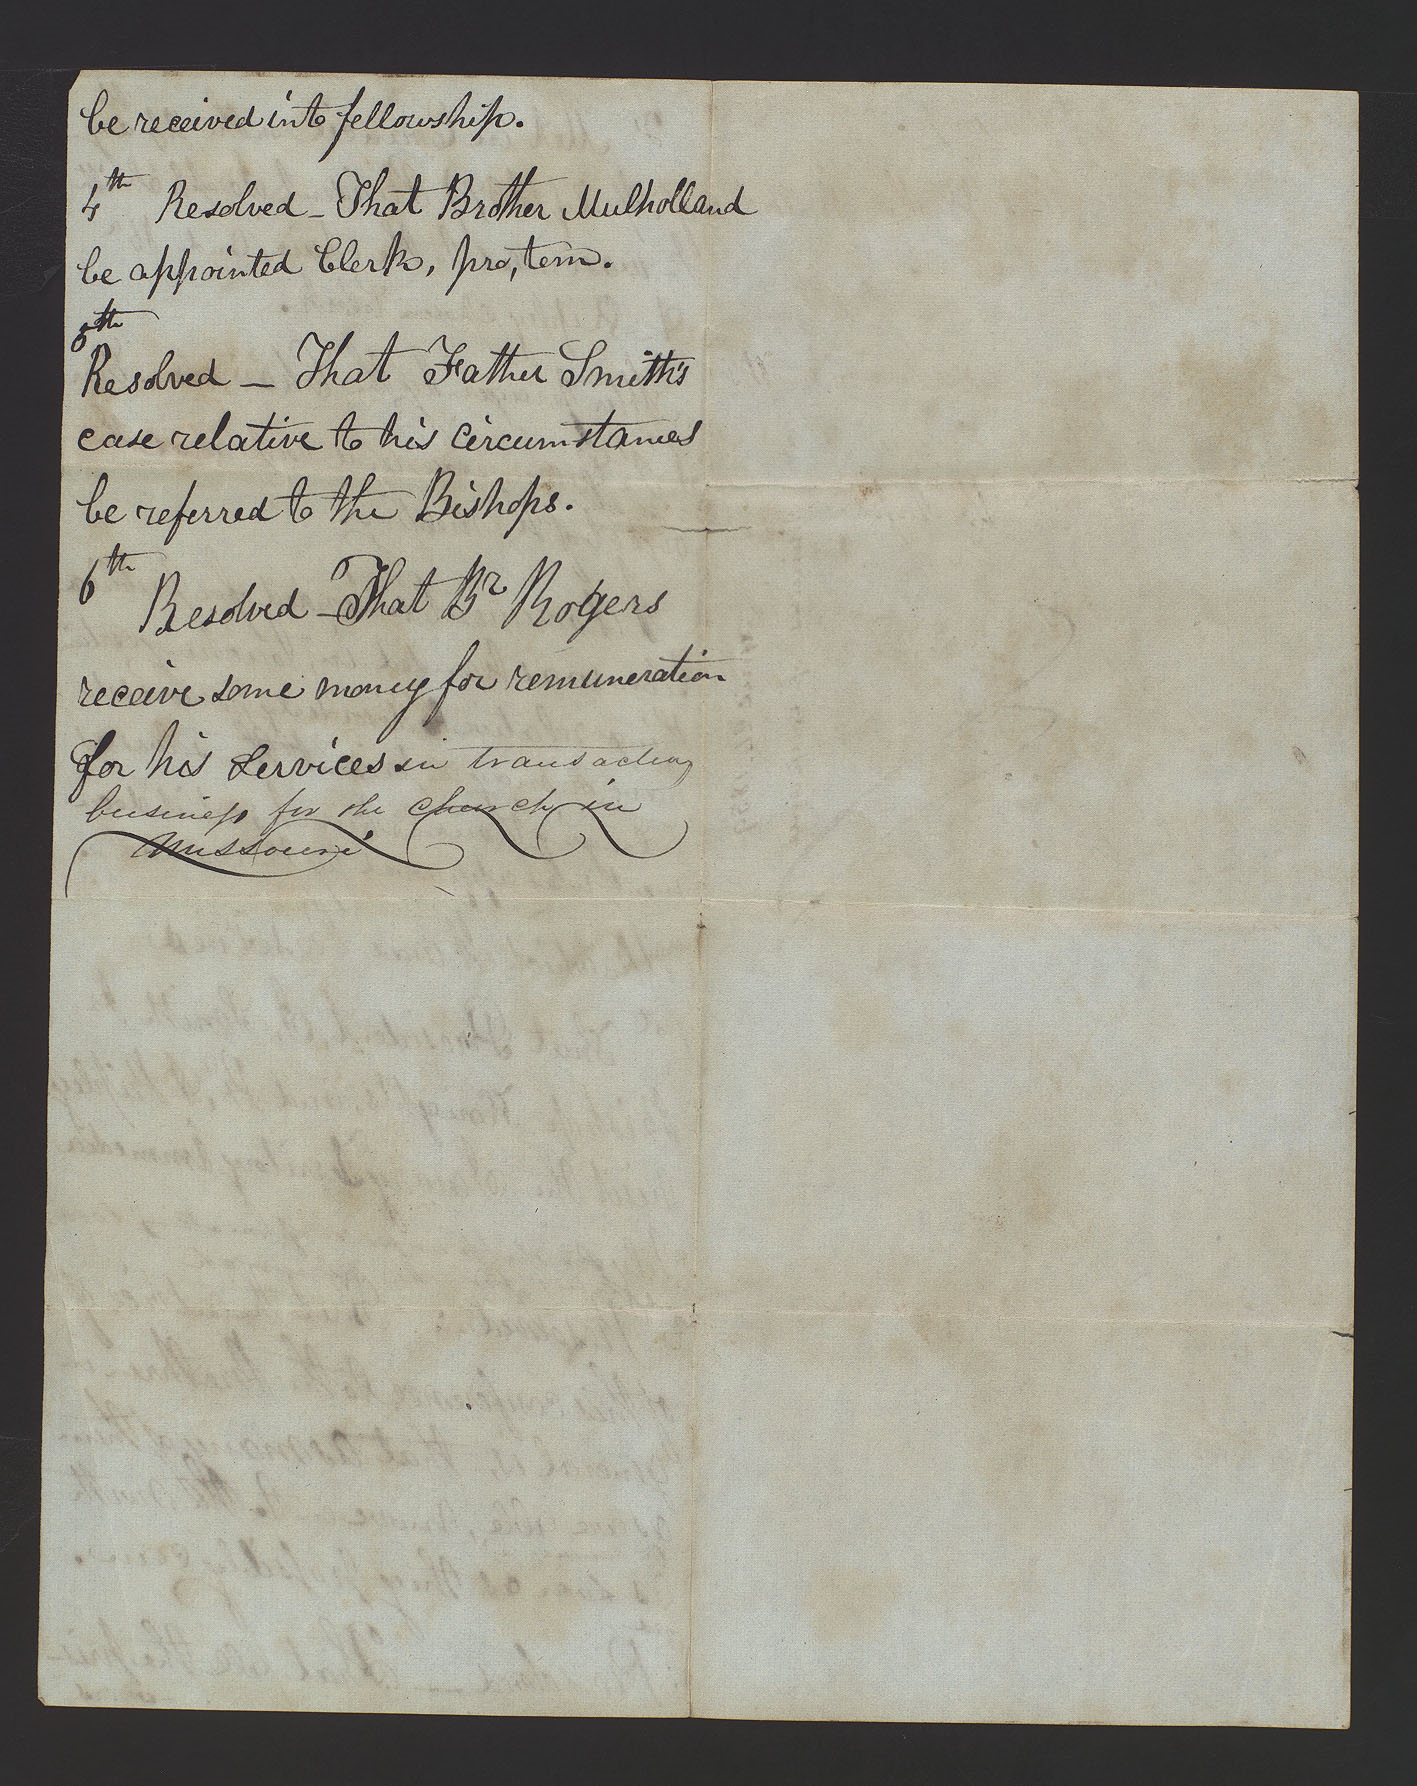 be received into fellowship.
4th Resolved – That Brother Mulholland
be appointed Clerk, pro, tem.
5th
Resolved – That Father Smith's
case relative to his circumstances
be referred to the Bishops.
6th
Resolved – That Br Rogers
receive some money for remuneration
for his services in transacting
business for the church in
Missouri